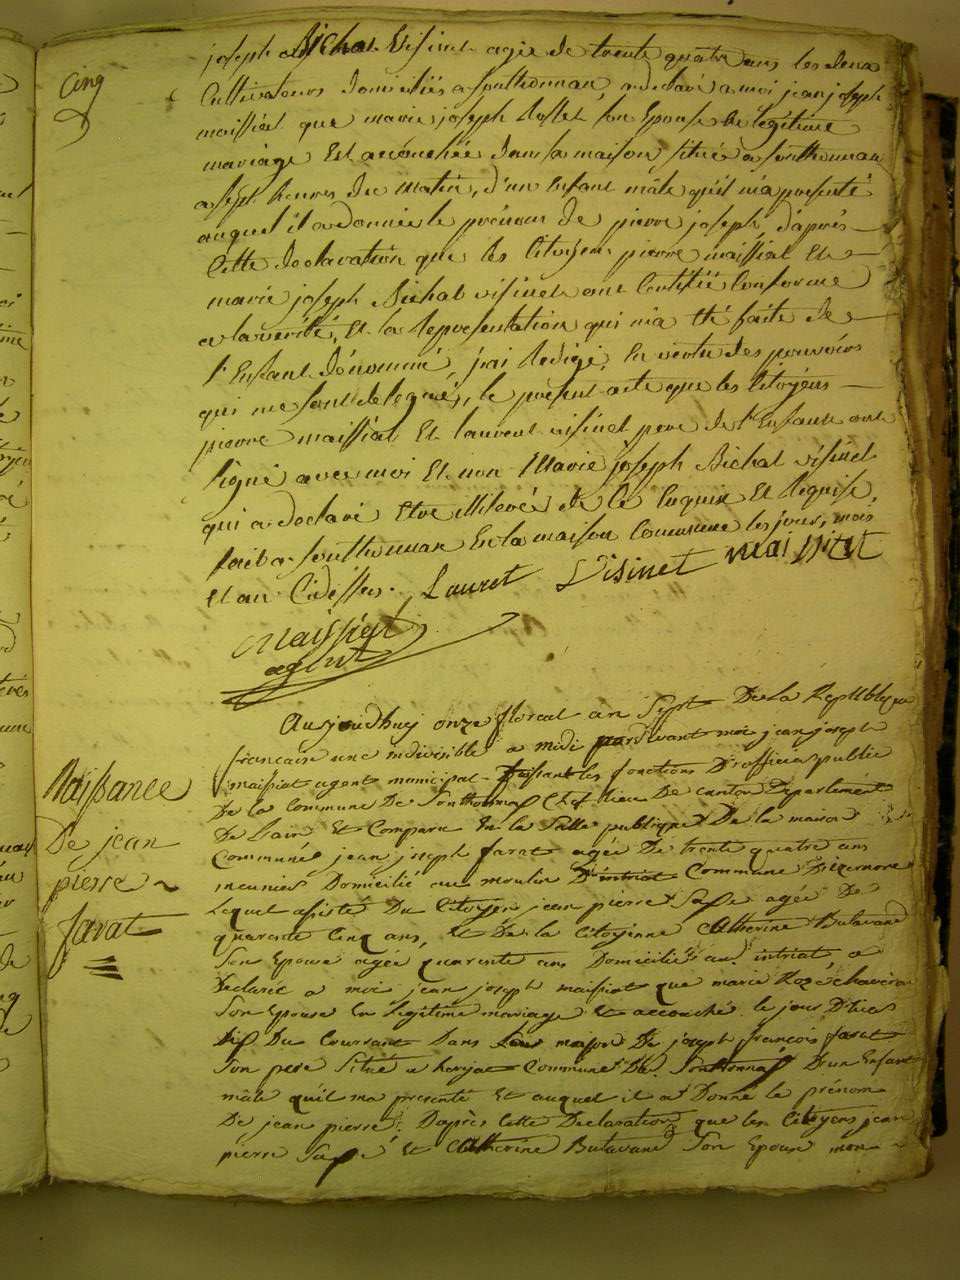 cinq
joseph Bichat Visinet agée de trente quatre ans les deux
Cultivateurs domiciliés a sonthonnax, a declaré a moi jean joseph
maissiat que marie joseph son Epouse En légitime
mariage Est accouchée dans sa maison située a sonthonnax
a sept heures du matin, d'un Enfant mâle qu'il m'a presenté
auquel il a donné le prénom de pierre joseph, d'après
Cette declaration que les Citoyens pierre maissiat Et
marie joseph Bichat visinet ont Certifié Conforme
a la verité, Et la Représentation qui m'a été faite de
l'Enfant dénommé, j'ai Redigé, En vertu des pouvoirs
qui me sont delegués, le présent acte que les Citoyens
pierre maissiat Et laurent visinet pere de l'Enfant ont
signé avec moi Et non Marie joseph Bichat visinet
qui a declaré Etre illiteré de Ce Enquise Et Requise,
fait a sonthonnax En la maison Commune les jour, mois
Et an Cidessus. Lauret Visinet maissiat
Maissiat
agent
Aujourdhuy onze floreal an Sept De la Republique
francaise une indivisible a midi pardevant moi jean joseph
maissiat agent municipal faisant les fonctions D'officier public
De la Commune De Sonthonnax Chef lieu De Canton Departement
De Lain Et Comparu En la Salle publique De la maison
Commune jean joseph favat agée De trente quatre ans
meunier Domicilié au moulin D'intriat Commune Dizernore
Lequel assisté Du Citoyen jean pierre agée De
quarente Cinq ans, Et De la Citoyenne Catherine Butavand
Son Epouse agée quarente ans Domiciliés au intriat a
Declaré a moi jean joseph maissiat que marie Roze
Son Epouse En legitime mariage Et accouché le jour D'hier
Dix Du Courrant Dans Les maison De joseph françois favat
Son pere Situé a Commune De Sonthonnax D'un Enfant
mâle qu'il ma presenté Et auquel il a Donné le prénom
De jean pierre. Daprès Cette Declaration que les Citoyens jean
pierre Et Catherine Butavand Son Epouse mon
Naissance
De jean
pierre
favat